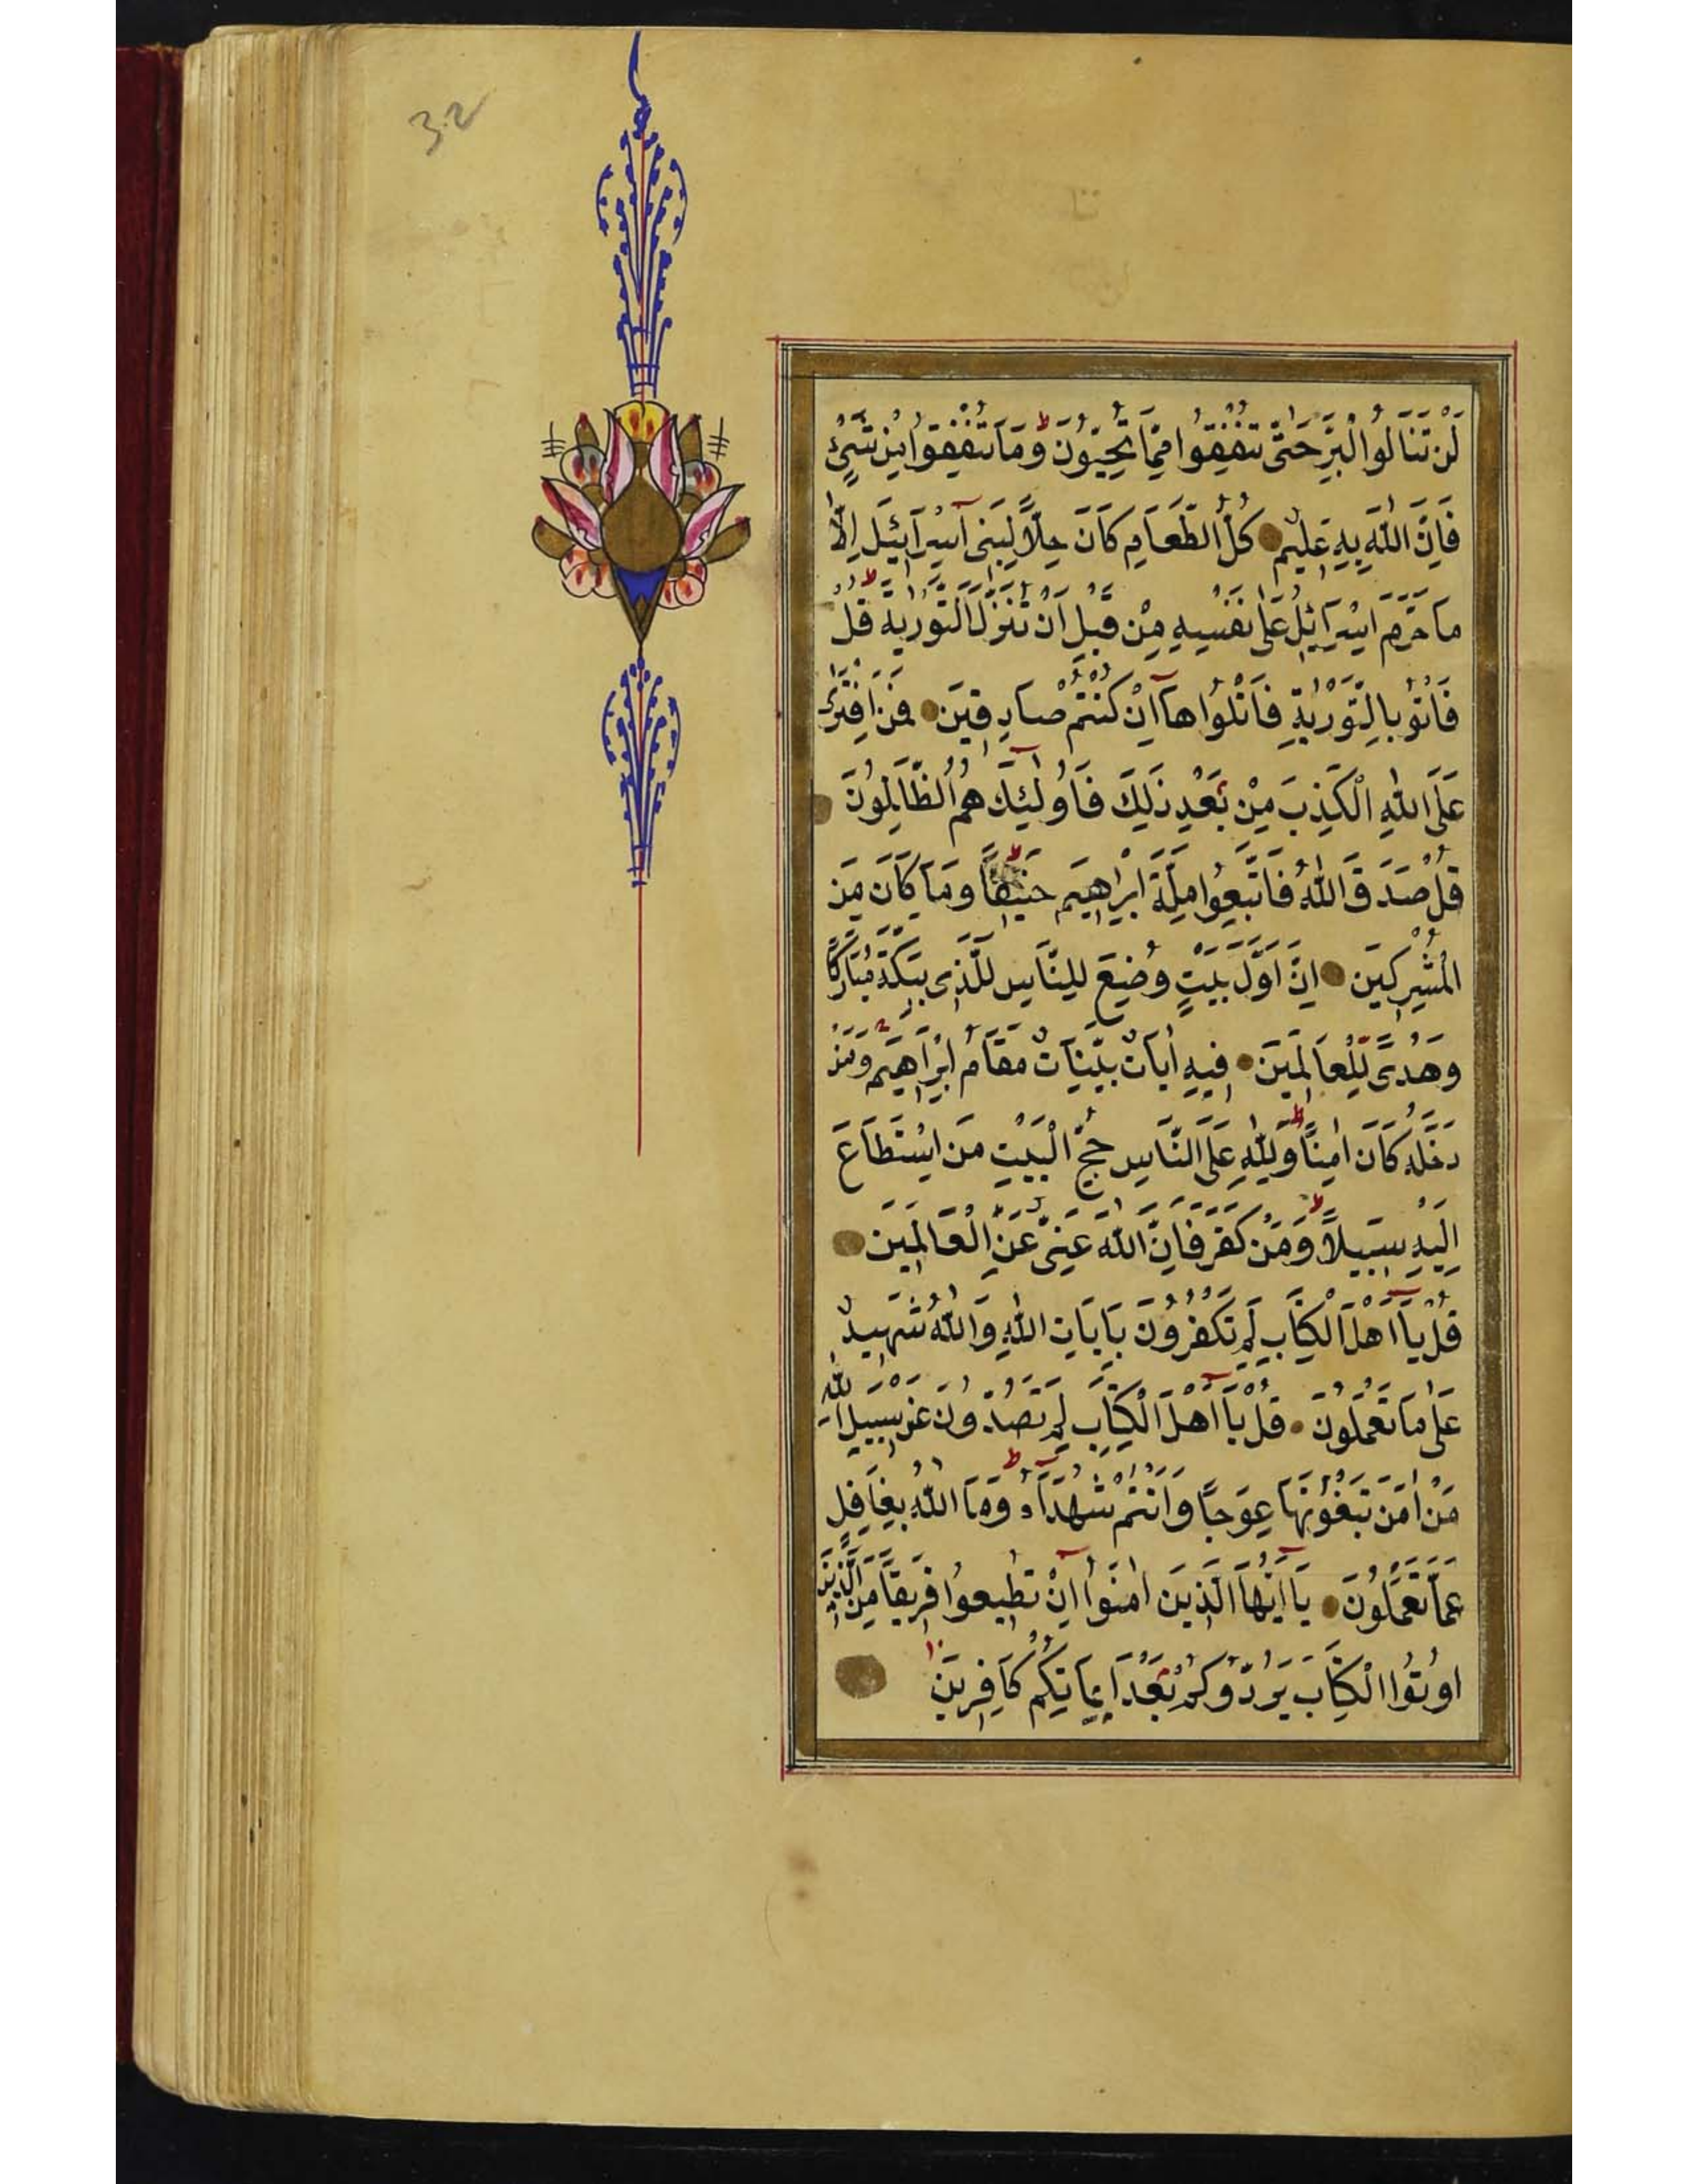 32
لَنْ تَنَالُوا الْبِرَّ حَتّٰى تُنْفِقُوا مِمَّا تُحِبُّونَ ط وَمَا تُنْفِقُوا مِنْ شَيْءٍ
فَاِنَّ اللّٰهَ بِهِ عَلِيمٌ كُلُّ الطَّعَامِ كَانَ حِلًّا لِبَنِى اِسْرَآئِيلَ اِلَّا
مَا حَرَّمَ اِسْرَآئِيلُ عَلٰى نَفْسِهِ مِنْ قَبْلِ اَنْ تُنَزَّلَ التَّوْرٰيةُ ط قُلْ
فَاْتُوا بِالتَّوْرٰيةِ فَاتْلُوهَآ اِنْ كُنْتُمْ صَادِقِينَ فَمَنِ افْتَرٰى
عَلَى اللّٰهِ الْكَذِبَ مِنْ بَعْدِ ذٰلِكَ فَاُولٰٓئِكَ هُمُ الظَّالِمُونَ
قُلْ صَدَقَ اللّٰهُ فَاتَّبِعُوا مِلَّةَ اِبْرٰاهِيمَ حَنِيفًا ط وَمَا كَانَ مِنَ
الْمُشْرِكِينَ اِنَّ اَوَّلَ بَيْتٍ وُضِعَ لِلنَّاسِ لَلَّذِى بِبَكَّةَ مُبَارَكًا
وَهُدًى لِلْعَالَمِينَ فِيهِ اٰيَاتٌ بَيِّنَاتٌ مَقَامُ اِبْرٰاهِيمَ وَمَنْ
دَخَلَهُ كَانَ اٰمِنًا ط وَلِلّٰهِ عَلَى النَّاسِ حِجُّ الْبَيْتِ مَنِ اسْتَطَاعَ
اِلَيْهِ سَبِيلًا ط وَمَنْ كَفَرَ فَاِنَّ اللّٰهَ غَنِىٌّ عَنِ الْعَالَمِينَ
قُلْ يَآ اَهْلَ الْكِتَابِ لِمَ تَكْفُرُونَ بِاٰيَاتِ اللّٰهِ وَاللّٰهُ شَهِيدٌ
عَلٰى مَا تَعْمَلُونَ قُلْ يَآ اَهْلَ الْكِتَابِ لِمَ تَصُدُّونَ عَنْ سَبِيلِ اللّٰهِ
مَنْ اٰمَنَ تَبْغُونَهَا عِوَجًا وَاَنْتُمْ شُهَدَآءُ ط وَمَا اللّٰهُ بِغَافِلٍ
عَمَّا تَعْمَلُونَ يَآ اَيُّهَا الَّذِينَ اٰمَنُوٓا اِنْ تُطِيعُوا فَرِيقًا مِنَ الَّذِينَ
اُوتُوا الْكِتَابَ يَرُدُّوكُمْ بَعْدَ اِيمَانِكُمْ كَافِرِينَ